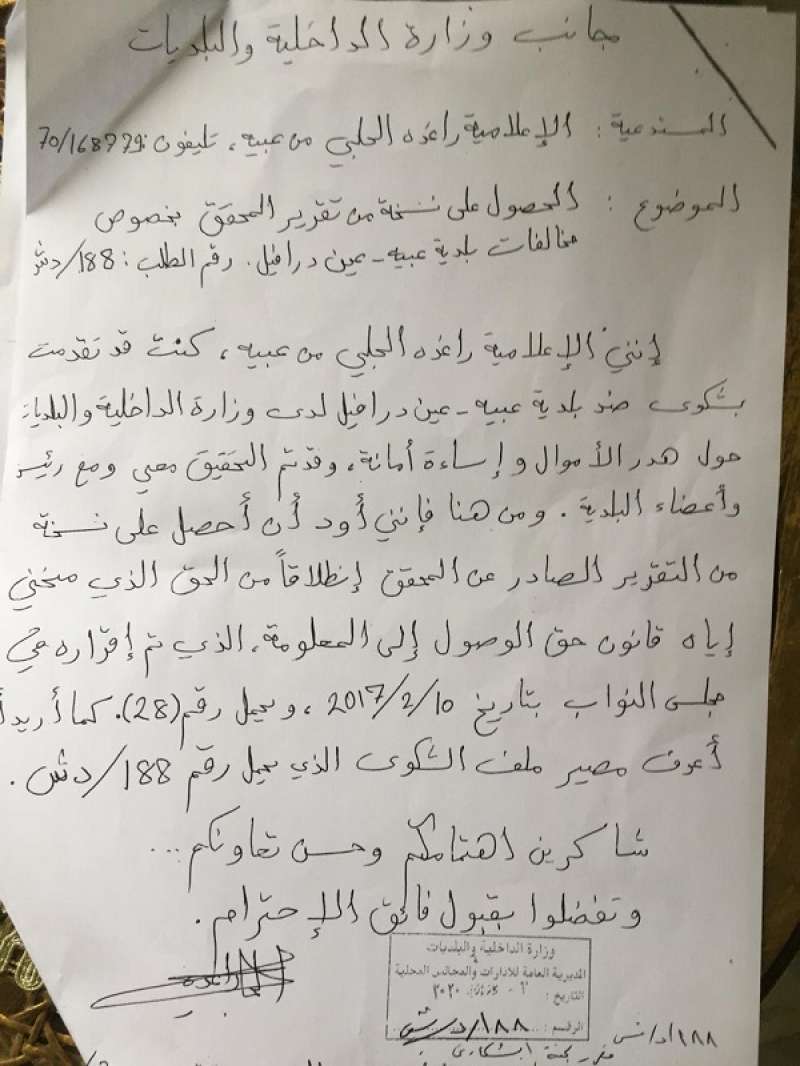 جانب وزارة الداخلية والبلديات
المستدعية : الإعلامية راغده الحلبي من عبيه، تليفون: 70/168779
الموضوع : الحصول على نسخة من تقرير المحقق بخصوص
مخالفات بلدية عبيه - عين درافيل. رقم الطلب: 188/دش
إنني الإعلامية راغده الحلبي من عبيه، كنت قد تقدمت
بشكوى ضد بلدية عبيه - عين درافيل لدى وزارة الداخلية والبلديات
حول هدر الأموال وإساءة أمانة، وقد تم التحقيق معي ومع رئيس
وأعضاء البلدية. ومن هنا فإنني أود أن أحصل على نسخة
من التقرير الصادر عن المحقق إنطلاقاً من الحق الذي منحني
إياه قانون حق الوصول إلى المعلومة، الذي تم إقراره في
مجلس النواب بتاريخ 2017/2/10، ويحمل رقم (28). كما أريد أ
أعرف مصير ملف الشكوى الذي يحمل رقم 188/دش.
شاكرين اهتمامكم وحسن تعاونكم...
وتفضلوا بقبول فائق الإحترام.
وزارة الداخلية والبلديات
المديرية العامة للإدارات والمجالس المحلية
التاريخ : ٢٠٢٠
الرقم : ١٨٨/دش
١٨٨